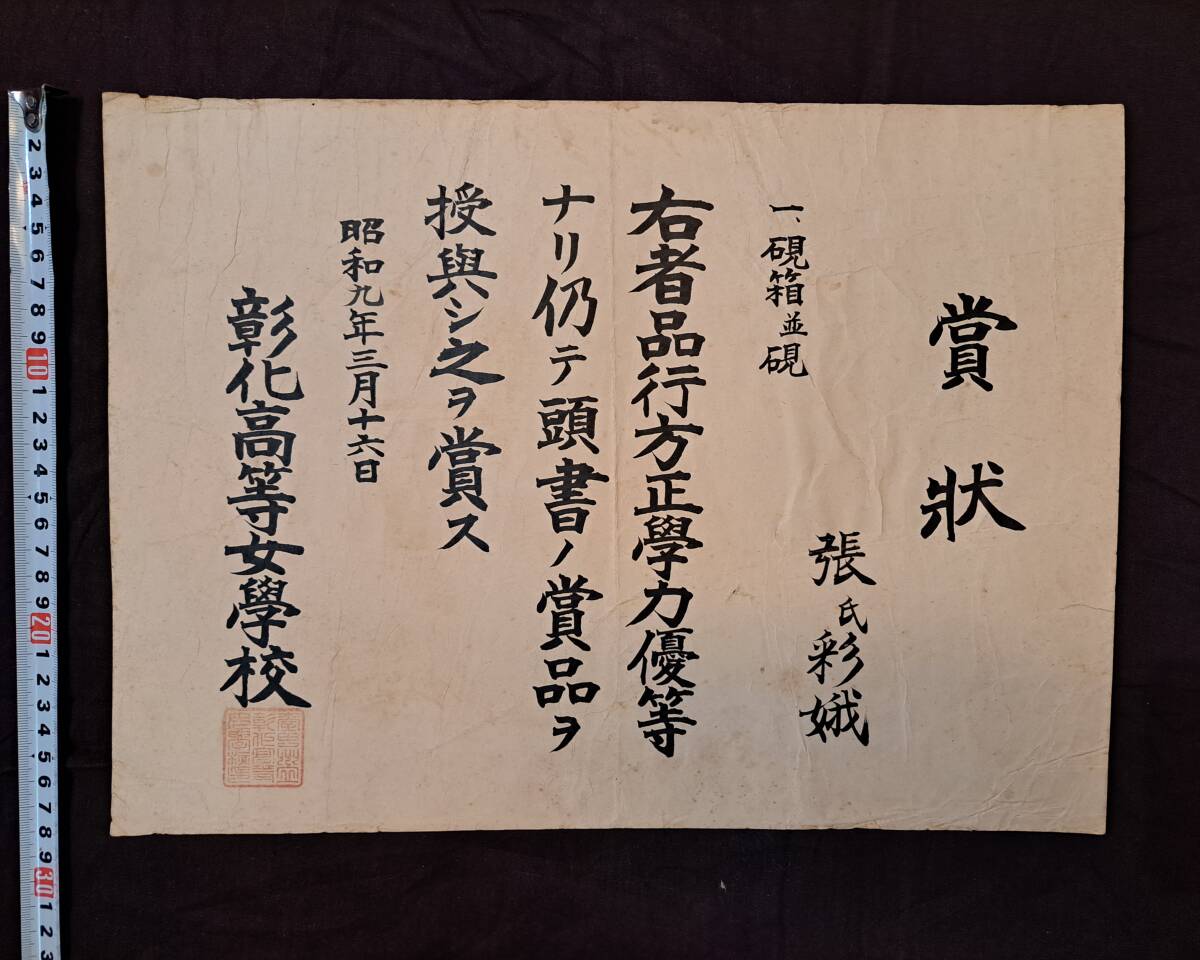 賞狀
張氏彩娥
一、硯箱並硯
右者品行方正學力優等
ナリ仍テ頭書ノ賞品ヲ
授與シ之ヲ賞ス
昭和九年三月十六日
彰化高等女學校
2 3 4 5 6 7 8 9 10 1 2 3 4 5 6 7 8 9 20 1 2 3 4 5 6 7 8 9 30 1 2 3